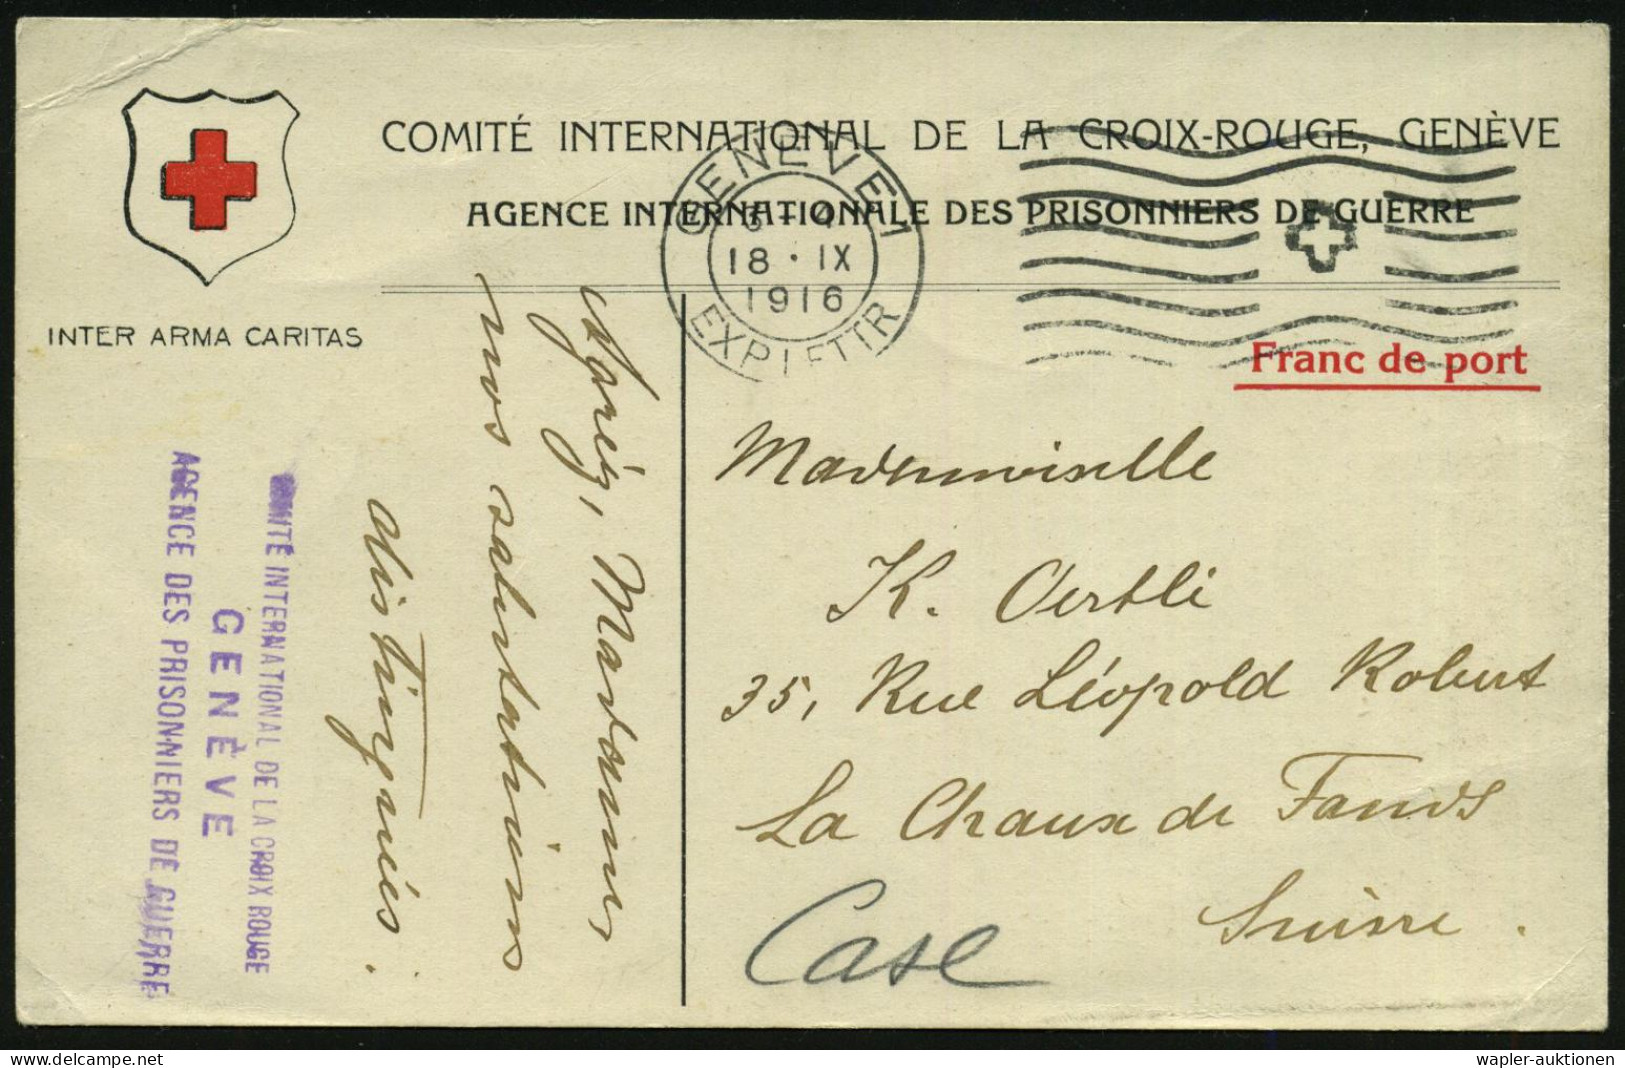 COMITÉ INTERNATIONAL DE LA CROIX-ROUGE, GENÈVE
AGENCE INTERNATIONALE DES PRISONNIERS DE GUERRE
INTER ARMA CARITAS
GENÈVE 1
18·IX
1916
EXP. LETTR
Franc de port
Mademoiselle
K. Oertli
35, Rue Léopold Robert
La Chaux de Fonds
Suisse.
Case
Agréez, Madame,
nos salutations
distinguées.
COMITÉ INTERNATIONAL DE LA CROIX ROUGE
GENÈVE
AGENCE DES PRISONNIERS DE GUERRE
Delcampe.net
wapler-auktionen